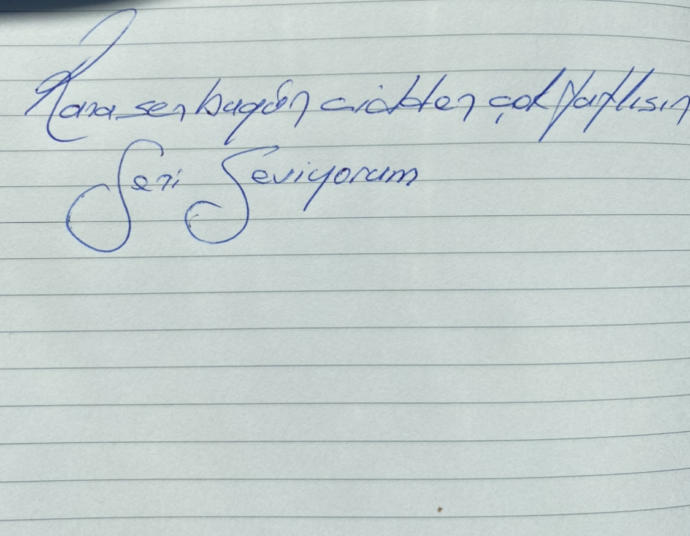 Rana sen bugün cidden çok tatlısın
Seni Seviyorum